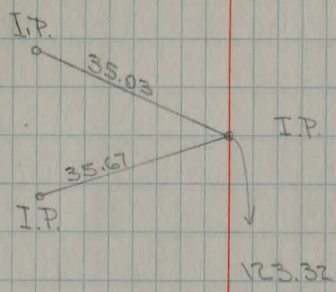 I.P.
35.03
I.P.
35.67
I.P.
123.32